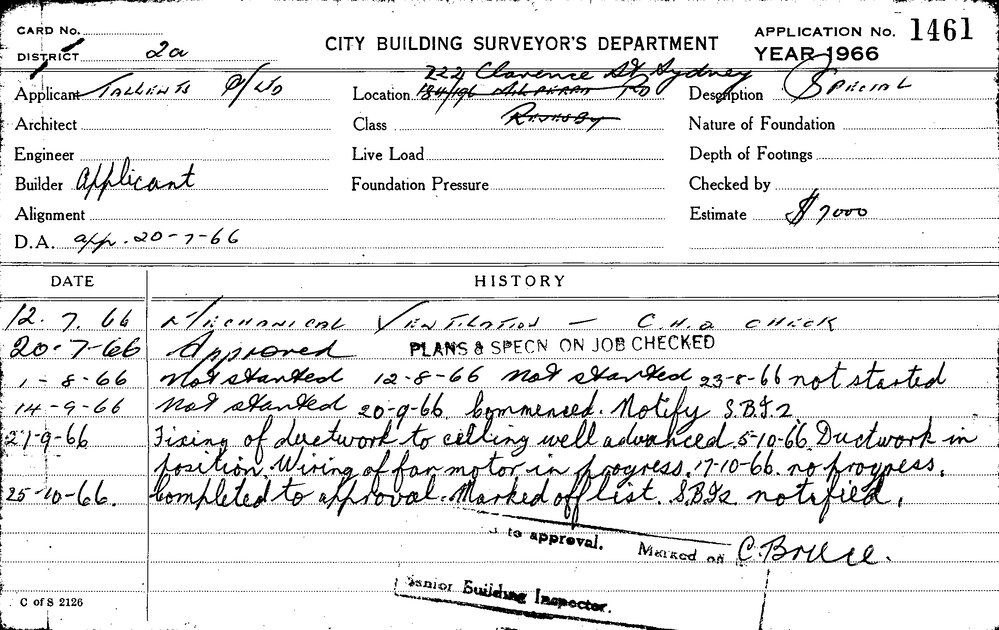 CARD No.
DISTRICT 2a
CITY BUILDING SURVEYOR'S DEPARTMENT
APPLICATION No. 1461
YEAR 1966
222 Clarence St Sydney
Applicant TALLENTS P/LTD
Location Rd
Description Special
Architect
Class
Nature of Foundation
Engineer
Live Load
Depth of Footings
Builder Applicant
Foundation Pressure
Checked by
Alignment
Estimate $7000
D.A. app. 20-7-66
DATE HISTORY
12. 7. 66 MECHANICAL VENTILATION — C.H.O CHECK
20-7-66 Approved PLANS & SPECN ON JOB CHECKED
1-8-66 Not started 12-8-66 Not started 23-8-66 not started
14-9-66 Not started 20-9-66. Commenced. Notify S.B.I.2
21-9-66 Fixing of ductwork to ceiling well advanced. 5-10-66. Ductwork in
position. Wiring of fan motor in progress. 17-10-66. no progress.
25-10-66. Completed to approval. Marked off list. S.B.I.2 notified.
to approval. Marked off C. Bruce.
Senior Building Inspector.
C of S 2126